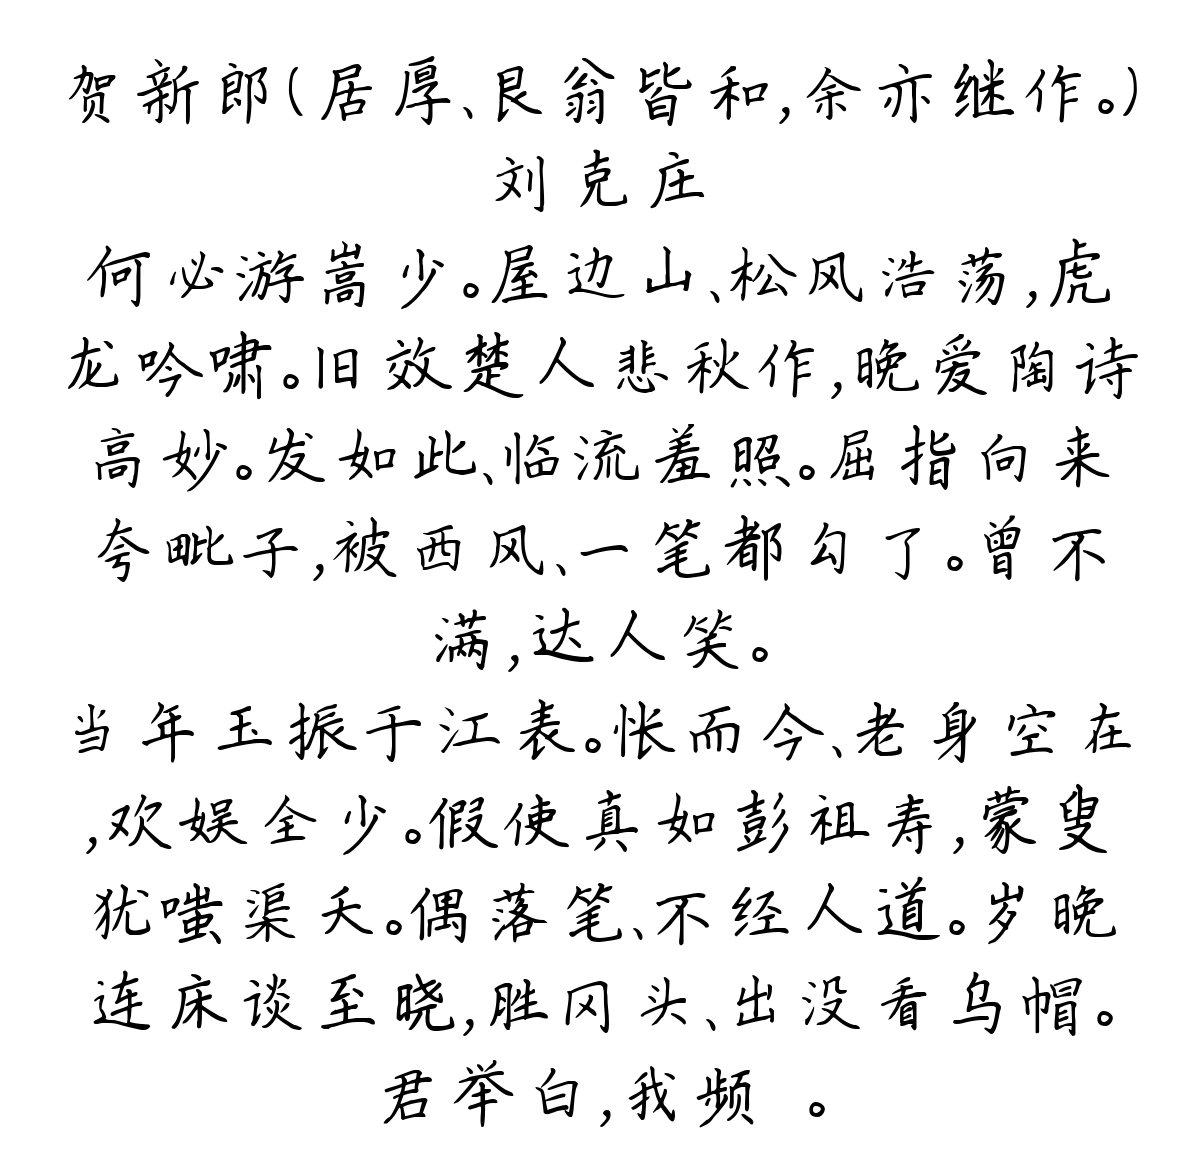 贺新郎(居厚、艮翁皆和,余亦继作。)
刘克庄
何必游嵩少。屋边山、松风浩荡,虎
龙吟啸。旧效楚人悲秋作,晚爱陶诗
高妙。发如此、临流羞照。屈指向来
夸毗子,被西风、一笔都勾了。曾不
满,达人笑。
当年玉振于江表。怅而今、老身空在
,欢娱全少。假使真如彭祖寿,蒙叟
犹嗤渠夭。偶落笔、不经人道。岁晚
连床谈至晓,胜冈头、出没看乌帽。
君举白,我频 。